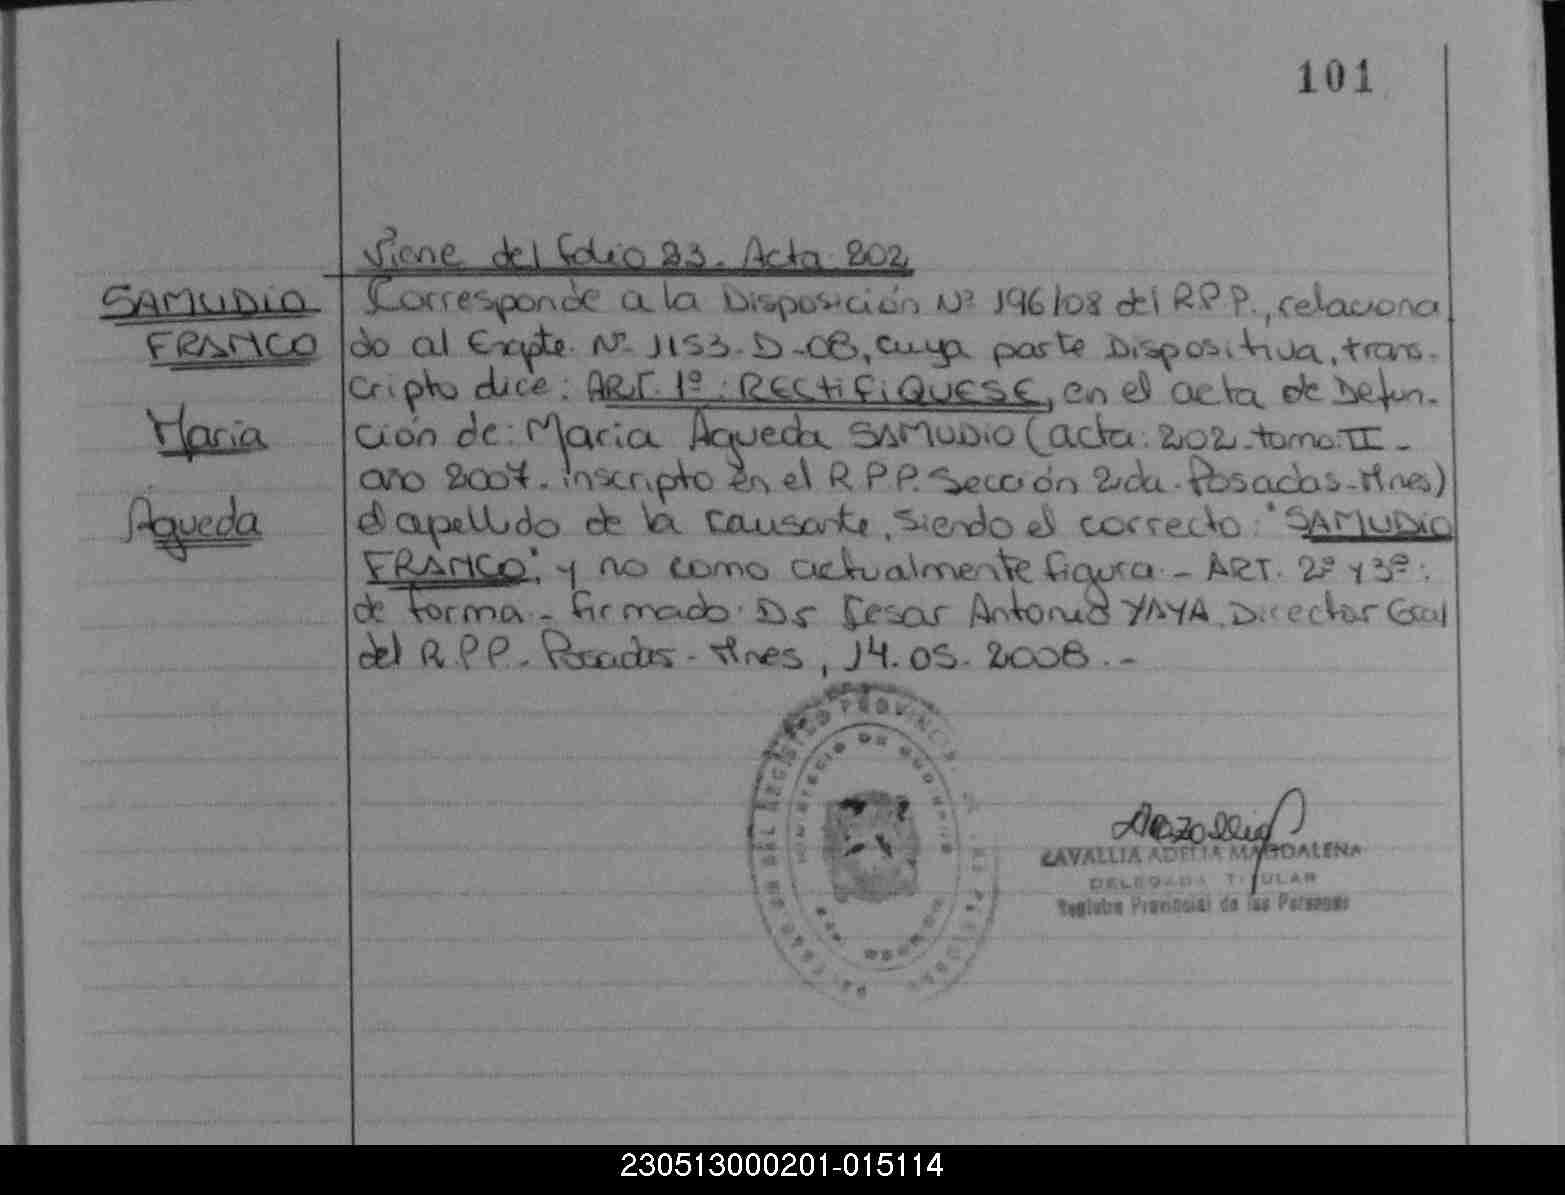 101
Viene del folio 23. Acta 202
SAMUDIO
FRANCO
Maria
Agueda
Corresponde a la Disposición Nº 196/08 del R.P.P., relaciona
do al Expte. Nº 1153-D-08, cuya parte Dispositiva, trans-
cripto dice: ART. 1º: RECTIFIQUESE, en el acta de Defun-
ción de: Maria Agueda SAMUDIO (acta: 202-tomo: II-
año 2007. inscripto en el R.P.P. Sección 2da. Posadas-Mnes)
el apellido de la causante, siendo el correcto: "SAMUDIO
FRANCO", y no como actualmente figura.- ART. 2º y 3º:
de forma- firmado: Dr Cesar Antonio YAYA. Director Gral
del R.P.P.- Posadas- Mnes, 14.05.2008.-
MINISTERIO DE GOBIERNO
ZAVALLIA ADELIA MAGDALENA
DELEGADA TITULAR
Registro Provincial de las Personas
230513000201-015114